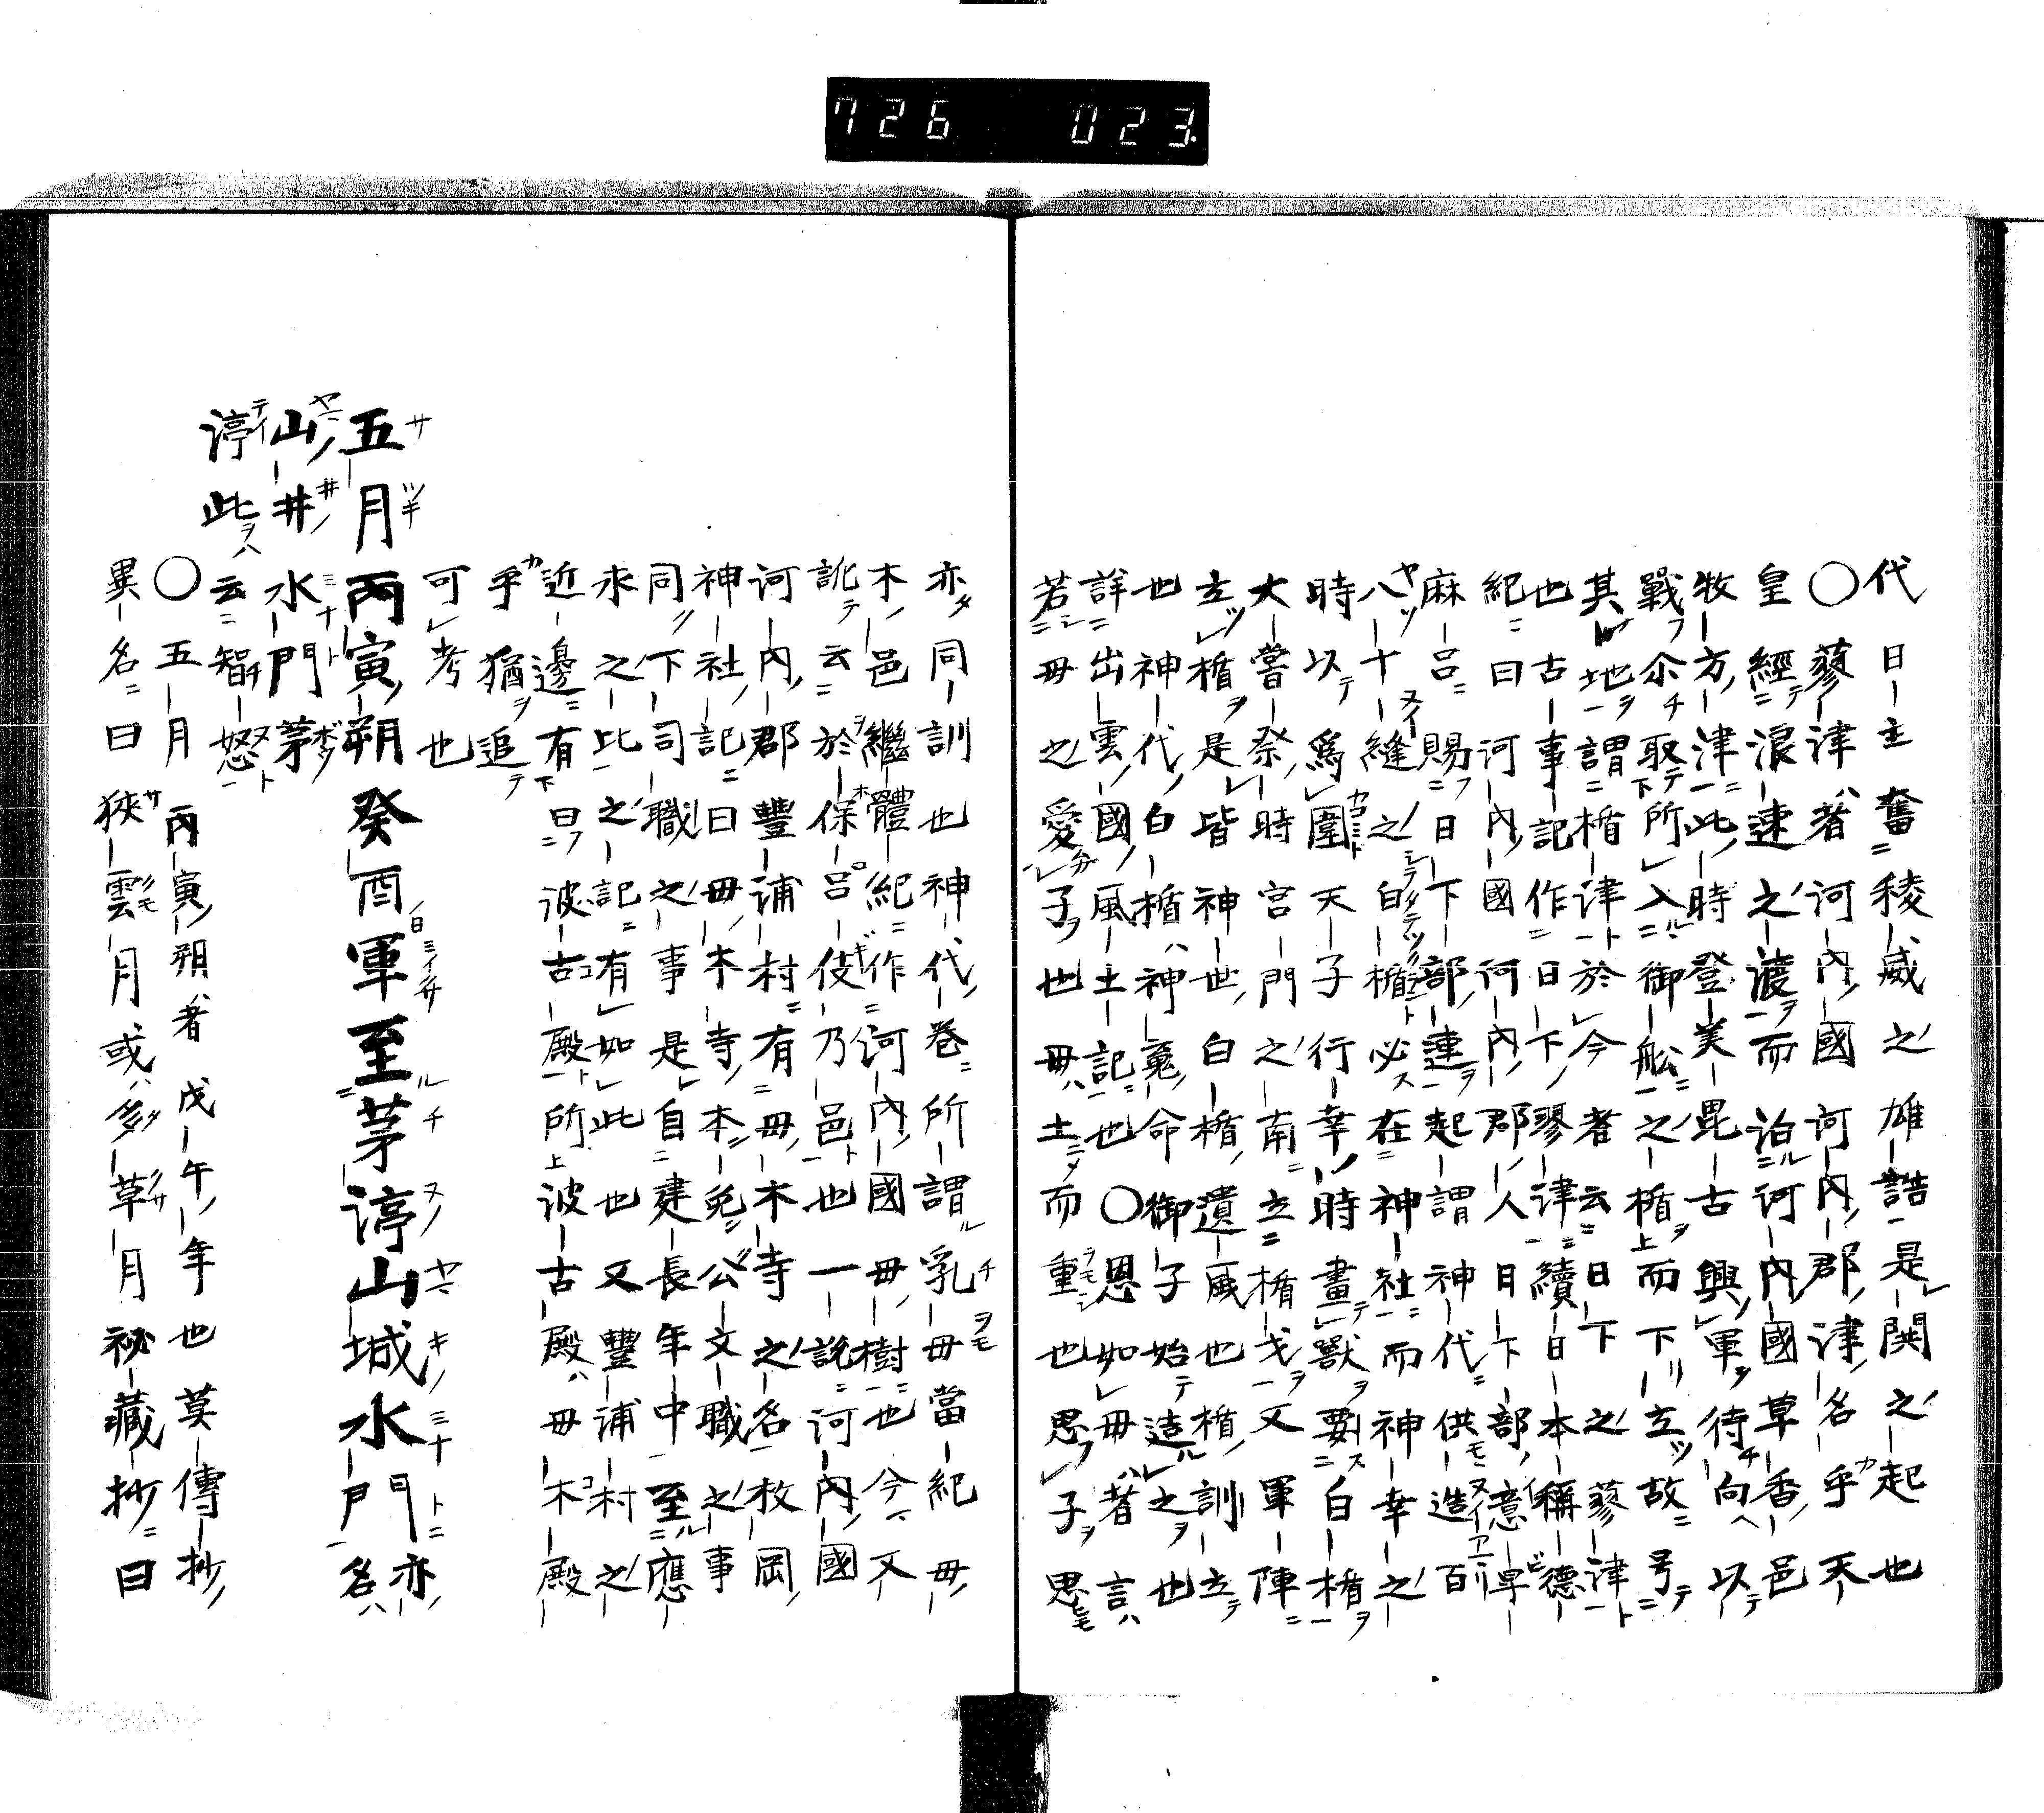 726 023
代日主奮稜威之雄誥是関之起也
〇蓼津著河内國河内郡津名乎天
皇經浪速之渡而泊河内國草香邑
牧方津此時登美毘古興軍待向以
戰尒取所入御舩之楯而下立故号
其地謂楯津於今者云日下之蓼津
也古事記作日下蓼津續日本稱德
紀曰河内國河内郡人日下部意卑
麻呂賜日下部連起謂神代供造百
八十縫之白楯必在神社而神幸之
時以爲圍天子行幸時畫獸要白楯
大甞祭時宮門之南立楯戈又軍陣
立楯是皆神世白楯遺風也楯訓立
也神代白楯神䰠命御子始造之也
詳出雲國風土記也〇恩如母著言
若母之愛子也母土而重也思子思
亦同訓也神代卷所謂乳母當紀母
木邑繼體紀作河内國母樹也今又
訛云於保呂伎乃邑也一說河内國
河内郡豐浦村有母木寺之名枚岡
神社記曰母木寺本免公文職之事
同下司職之事是自建長年中至應
永之比之記有如此也又豐浦村之
近邊有曰波古殿所波古殿母木殿
乎猶追
可考也
五月丙寅朔癸酉軍至茅渟山城水門亦名
山井水門茅
渟此云智怒
〇五月丙寅朔者戊午年也莫傳抄
異名曰狹雲月或多草月秘藏抄曰